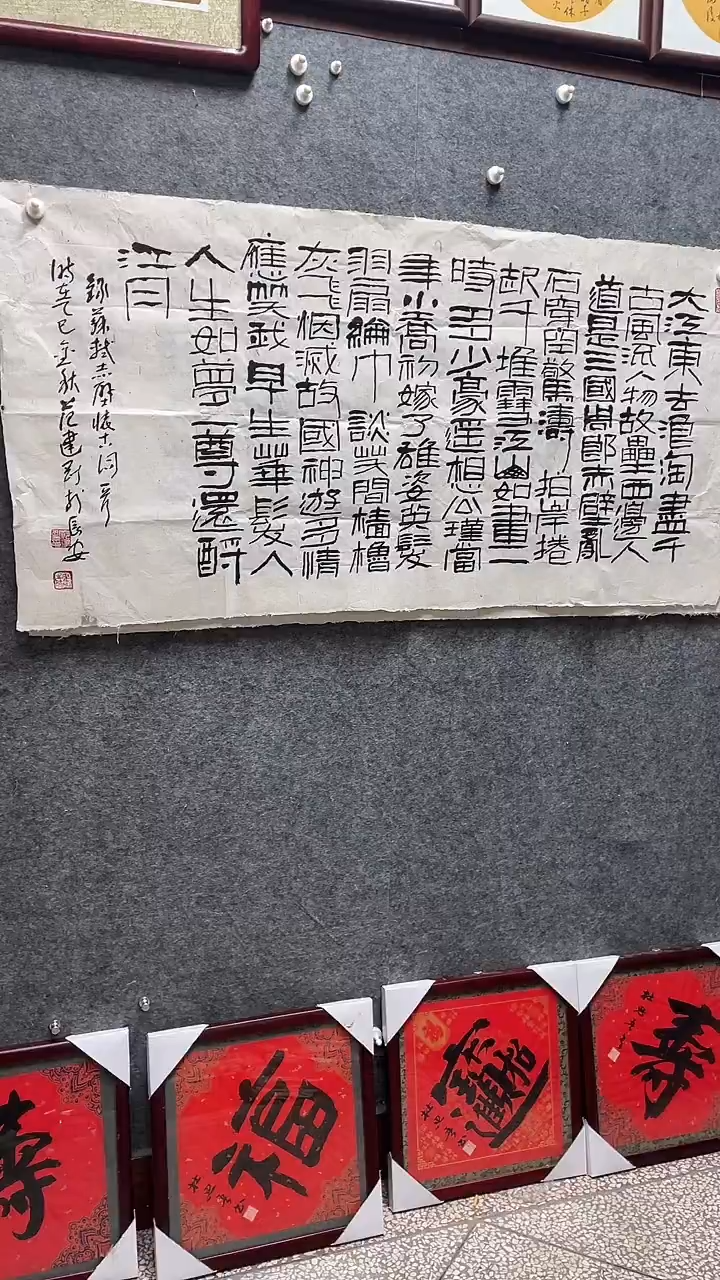 大江東去浪淘盡千
古風流人物故壘西邊人
道是三國周郎赤壁亂
石穿空驚濤拍岸捲
起千堆雪江山如畫一
時多少豪遥想公瑾當
年小喬初嫁了雄姿英髮
羽扇綸巾談笑間檣櫓
灰飛烟滅故國神游多情
應笑我早生華髮人
人生如夢一尊還酹
江月
錄蘇軾赤壁懷古詞一首
時在乙巳金秋范建於長安
壽
福
招財進寶
壽